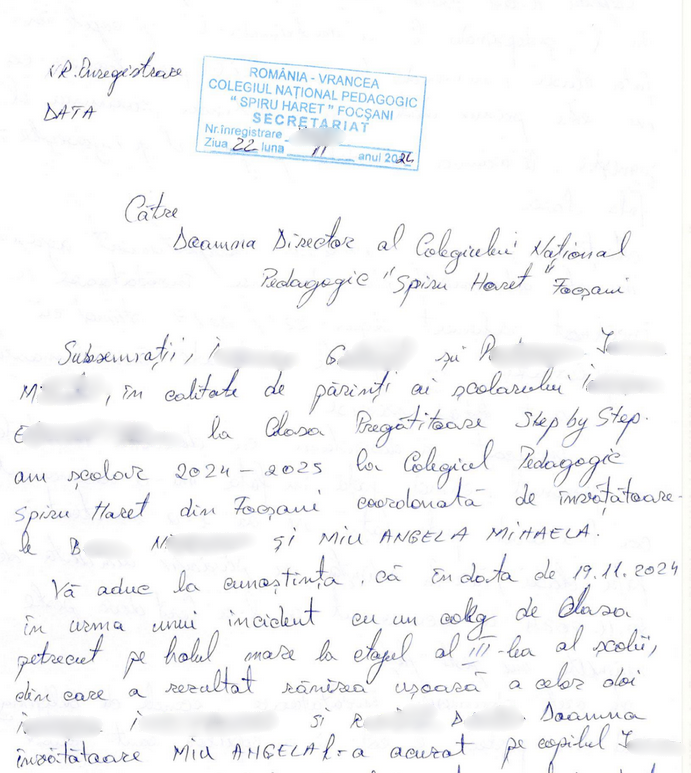 NR. Înregistrare
DATA
ROMÂNIA - VRANCEA
COLEGIUL NAȚIONAL PEDAGOGIC
“ SPIRU HARET ” FOCȘANI
SECRETARIAT
Nr.înregistrare
Ziua 22 luna 11 anul 2024
Către
Doamna Director al Colegiului Național
Pedagogic "Spiru Haret" Focșani
Subsemnații, I G și R I
M , în calitate de părinți ai școlarului I
E la Clasa Pregătitoare Step by Step.
an școlar 2024 - 2025 la Colegiul Pedagogic
Spiru Haret din Focșani coordonată de învățătoare-
le B N ȘI MIU ANGELA MIHAELA.
Vă aduc la cunoștința, că în data de 19.11.2024
în urma unui incident cu un coleg de Clasa
petrecut pe holul mare la etajul al III-lea al școlii,
din care a rezultat rănirea ușoară a celor doi
I I și R D Doamna
învățătoare MIU ANGELA l-a acuzat pe copilul I